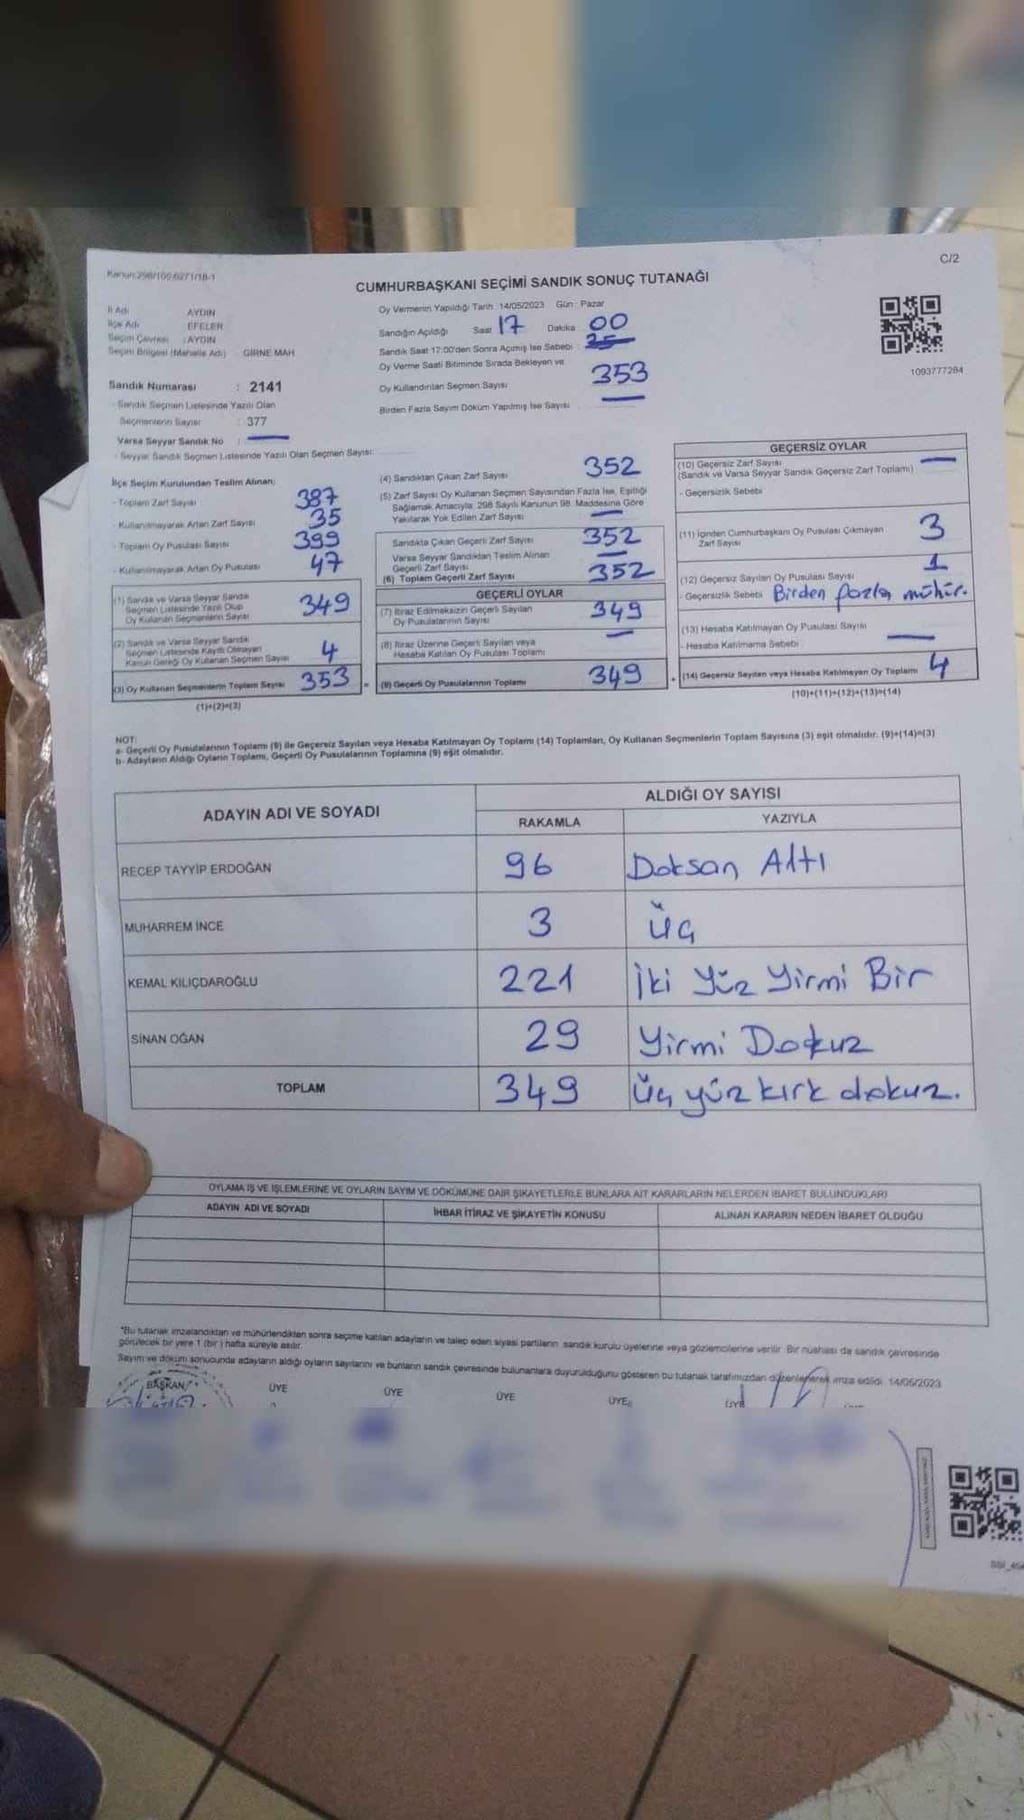 Kanun:298/105,6271/18-1
C/2
CUMHURBAŞKANI SEÇİMİ SANDIK SONUÇ TUTANAĞI
İl Adı AYDIN
İlçe Adı EFELER
Seçim Çevresi : AYDIN
Seçim Bölgesi (Mahalle Adı) : GİRNE MAH
Sandık Numarası : 2141
- Sandık Seçmen Listesinde Yazılı Olan
Seçmenlerin Sayısı : 377
Varsa Seyyar Sandık No :
- Seyyar Sandık Seçmen Listesinde Yazılı Olan Seçmen Sayısı:
Oy Vermenin Yapıldığı Tarih : 14/05/2023 Gün : Pazar
Sandığın Açıldığı Saat 17 Dakika 00
Sandık Saat 17:00'den Sonra Açılmış İse Sebebi :
Oy Verme Saati Bitiminde Sırada Bekleyen ve
Oy Kullandırılan Seçmen Sayısı 353
Birden Fazla Sayım Döküm Yapılmış İse Sayısı
1093777284
İlçe Seçim Kurulundan Teslim Alınan;
- Toplam Zarf Sayısı 387
- Kullanılmayarak Artan Zarf Sayısı 35
- Toplam Oy Pusulası Sayısı 399
- Kullanılmayarak Artan Oy Pusulası 47
(1) Sandık ve Varsa Seyyar Sandık
Seçmen Listesinde Yazılı Olup
Oy Kullanan Seçmenlerin Sayısı 349
(2) Sandık ve Varsa Seyyar Sandık
Seçmen Listesinde Kayıtlı Olmayan
Kanun Gereği Oy Kullanan Seçmen Sayısı 4
(3) Oy Kullanan Seçmenlerin Toplam Sayısı 353 =
(1)+(2)=(3)
(4) Sandıktan Çıkan Zarf Sayısı 352
(5) Zarf Sayısı Oy Kullanan Seçmen Sayısından Fazla İse, Eşitliği
Sağlamak Amacıyla; 298 Sayılı Kanunun 98. Maddesine Göre
Yakılarak Yok Edilen Zarf Sayısı
Sandıkta Çıkan Geçerli Zarf Sayısı 352
Varsa Seyyar Sandıktan Teslim Alınan
Geçerli Zarf Sayısı
(6) Toplam Geçerli Zarf Sayısı 352
GEÇERLİ OYLAR
(7) İtiraz Edilmeksizin Geçerli Sayılan
Oy Pusulalarının Sayısı 349
(8) İtiraz Üzerine Geçerli Sayılan veya
Hesaba Katılan Oy Pusulası Toplamı
(9) Geçerli Oy Pusulalarının Toplamı 349 +
GEÇERSİZ OYLAR
(10) Geçersiz Zarf Sayısı
(Sandık ve Varsa Seyyar Sandık Geçersiz Zarf Toplamı)
- Geçersizlik Sebebi
(11) İçinden Cumhurbaşkanı Oy Pusulası Çıkmayan
Zarf Sayısı 3
(12) Geçersiz Sayılan Oy Pusulası Sayısı 1
- Geçersizlik Sebebi Birden fazla mühür.
(13) Hesaba Katılmayan Oy Pusulası Sayısı
- Hesaba Katılmama Sebebi
(14) Geçersiz Sayılan veya Hesaba Katılmayan Oy Toplamı 4
(10)+(11)+(12)+(13)=(14)
NOT:
a- Geçerli Oy Pusulalarının Toplamı (9) ile Geçersiz Sayılan veya Hesaba Katılmayan Oy Toplamı (14) Toplamları, Oy Kullanan Seçmenlerin Toplam Sayısına (3) eşit olmalıdır. (9)+(14)=(3)
b- Adayların Aldığı Oyların Toplamı, Geçerli Oy Pusulalarının Toplamına (9) eşit olmalıdır.
ADAYIN ADI VE SOYADI
ALDIĞI OY SAYISI
RAKAMLA YAZIYLA
RECEP TAYYİP ERDOĞAN 96 Doksan Altı
MUHARREM İNCE 3 üç
KEMAL KILIÇDAROĞLU 221 İki Yüz Yirmi Bir
SİNAN OĞAN 29 Yirmi Dokuz
TOPLAM 349 üç yüz kırk dokuz.
OYLAMA İŞ VE İŞLEMLERİNE VE OYLARIN SAYIM VE DÖKÜMÜNE DAİR ŞİKAYETLERLE BUNLARA AİT KARARLARIN NELERDEN İBARET BULUNDUKLARI
ADAYIN ADI VE SOYADI İHBAR İTİRAZ VE ŞİKAYETİN KONUSU ALINAN KARARIN NEDEN İBARET OLDUĞU
*Bu tutanak imzalandıktan ve mühürlendikten sonra seçime katılan adayların ve talep eden siyasi partilerin sandık kurulu üyelerine veya gözlemcilerine verilir. Bir nüshası da sandık çevresinde
görülecek bir yere 1 (bir) hafta süreyle asılır.
Sayım ve döküm sonucunda adayların aldığı oyların sayılarını ve bunların sandık çevresinde bulunanlara duyurulduğunu gösteren bu tutanak tarafımızdan düzenlenerek imza edildi. 14/05/2023
BAŞKAN ÜYE ÜYE ÜYE ÜYE ÜYE